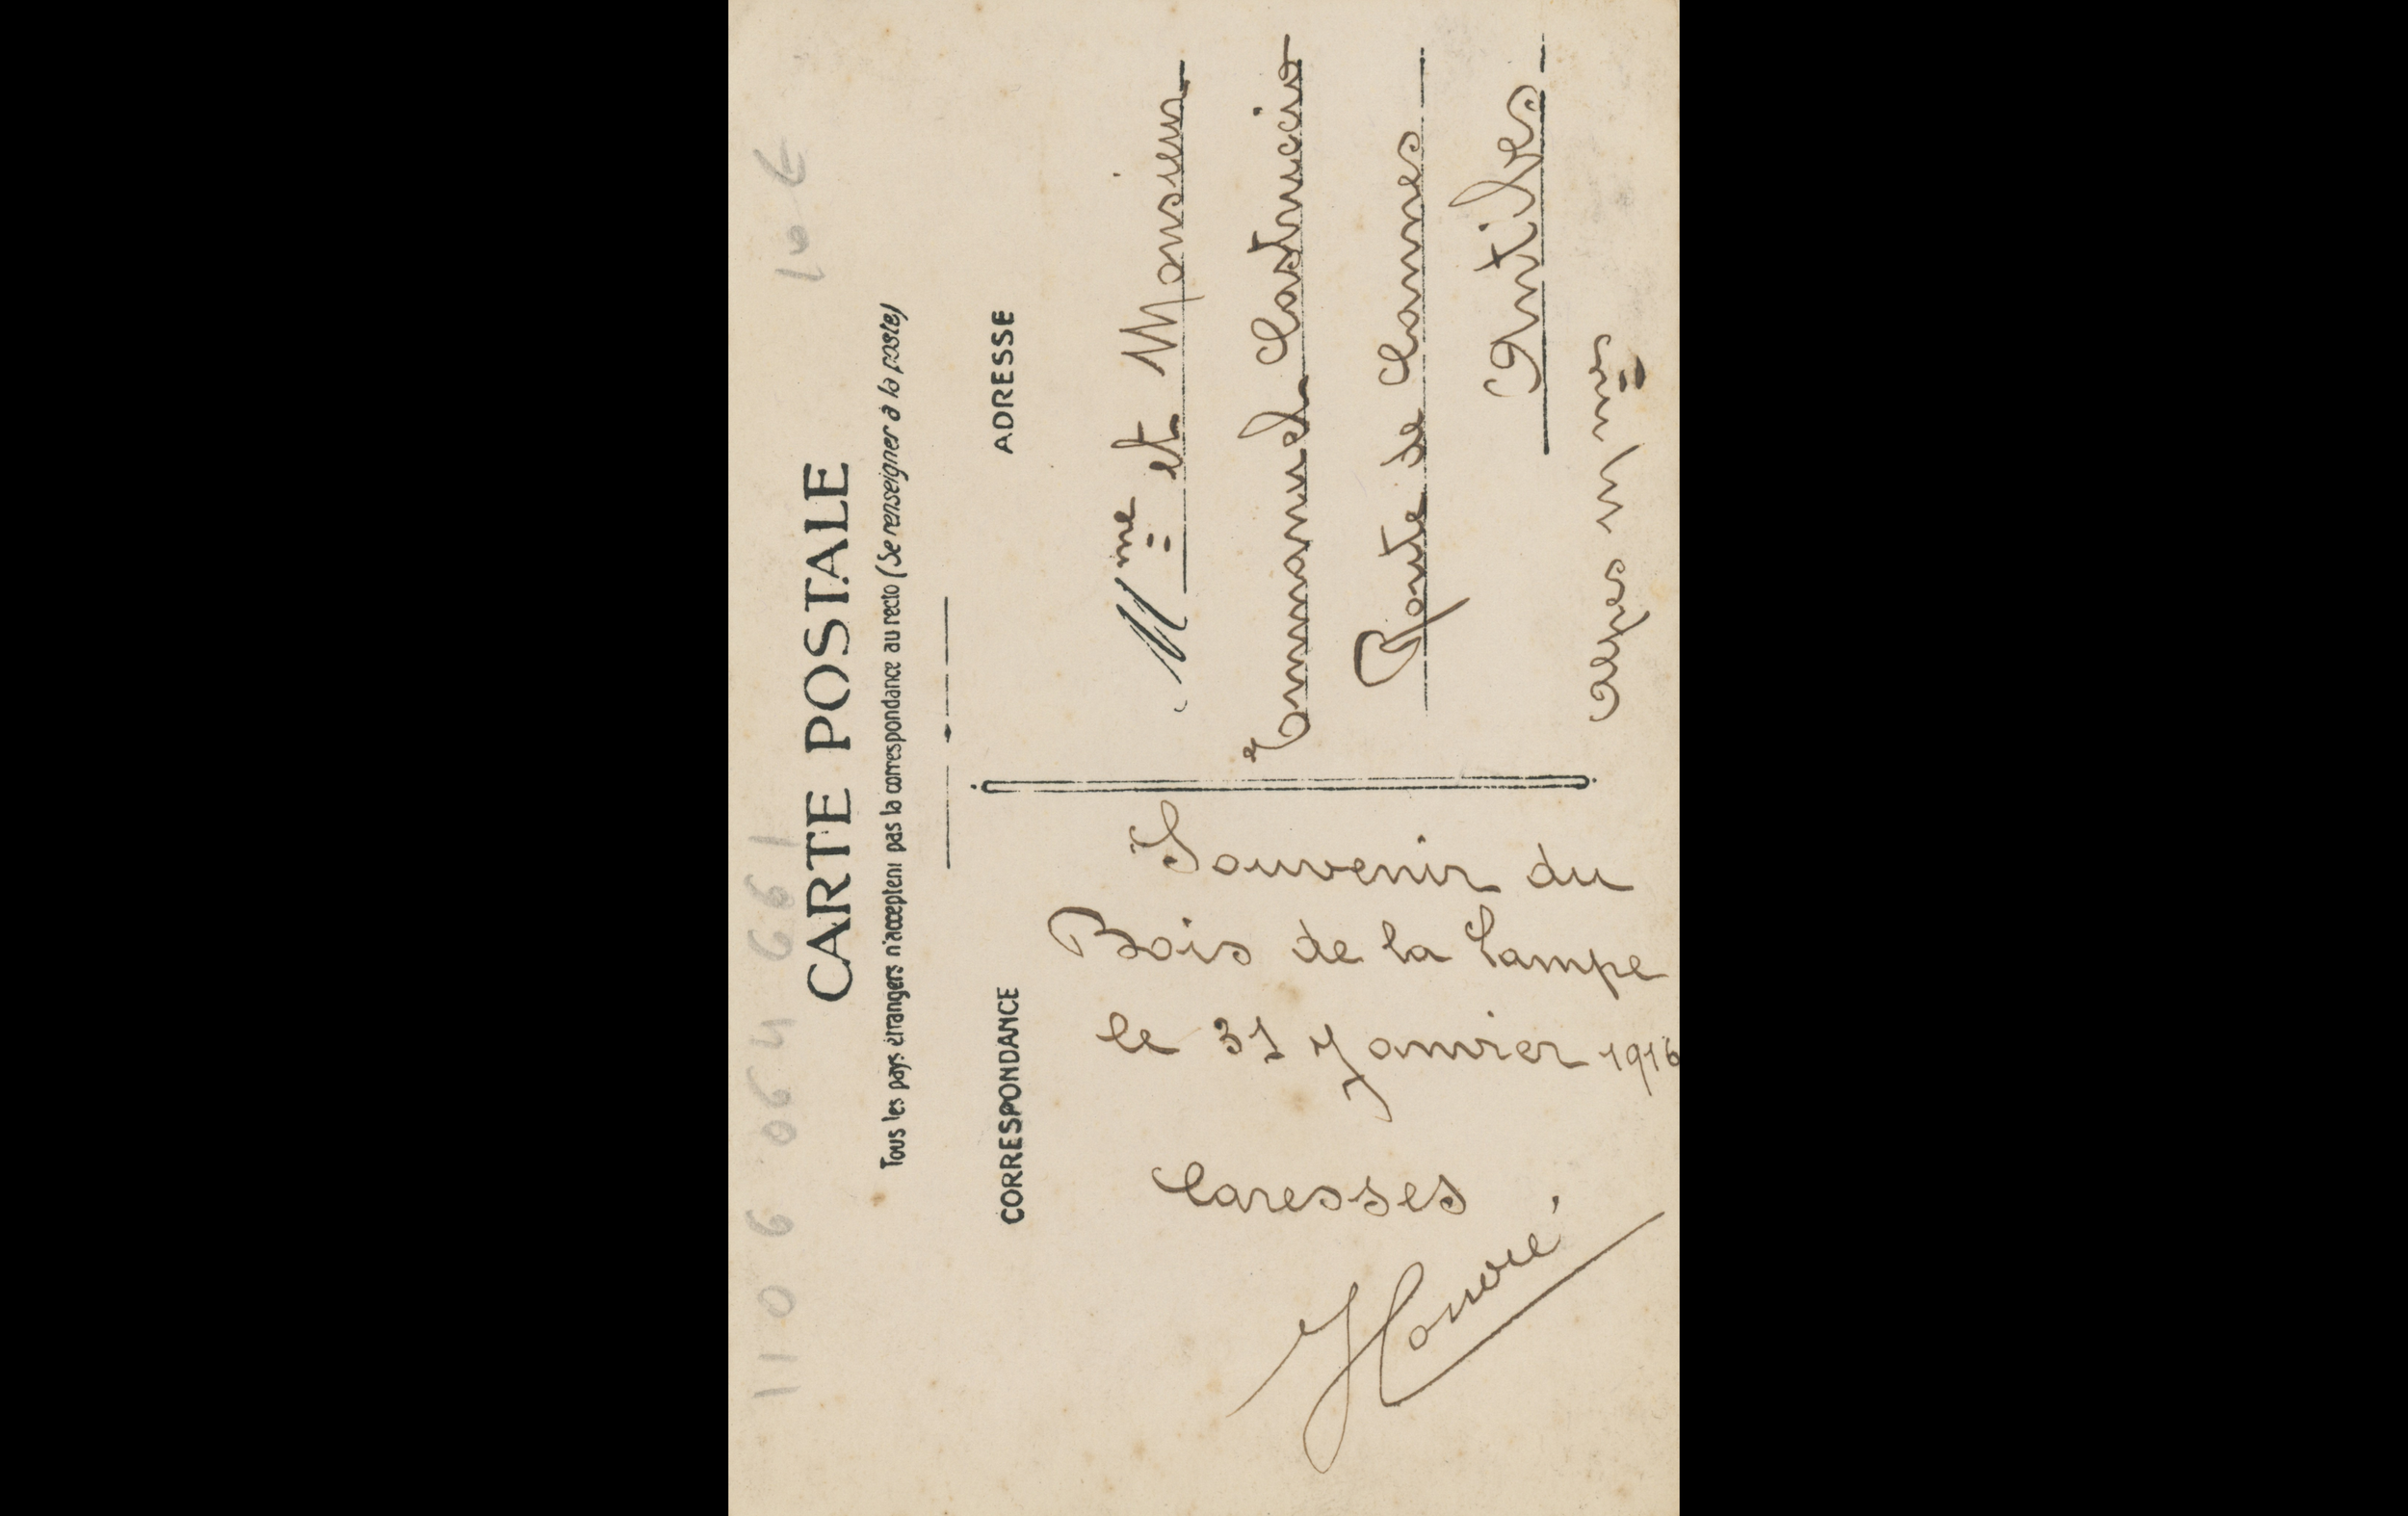 10 €
CARTE POSTALE
Tous les pays étrangers n'acceptent pas la correspondance au recto (Se renseigner à la poste)
CORRESPONDANCE
Souvenir du
Bois de la Lampe
le 31 Janvier 1916
Caresses
Honoré
ADRESSE
Mme et Monsieur
Emmanuel Castruccio
Route de Cannes
Antibes
alpes m mes